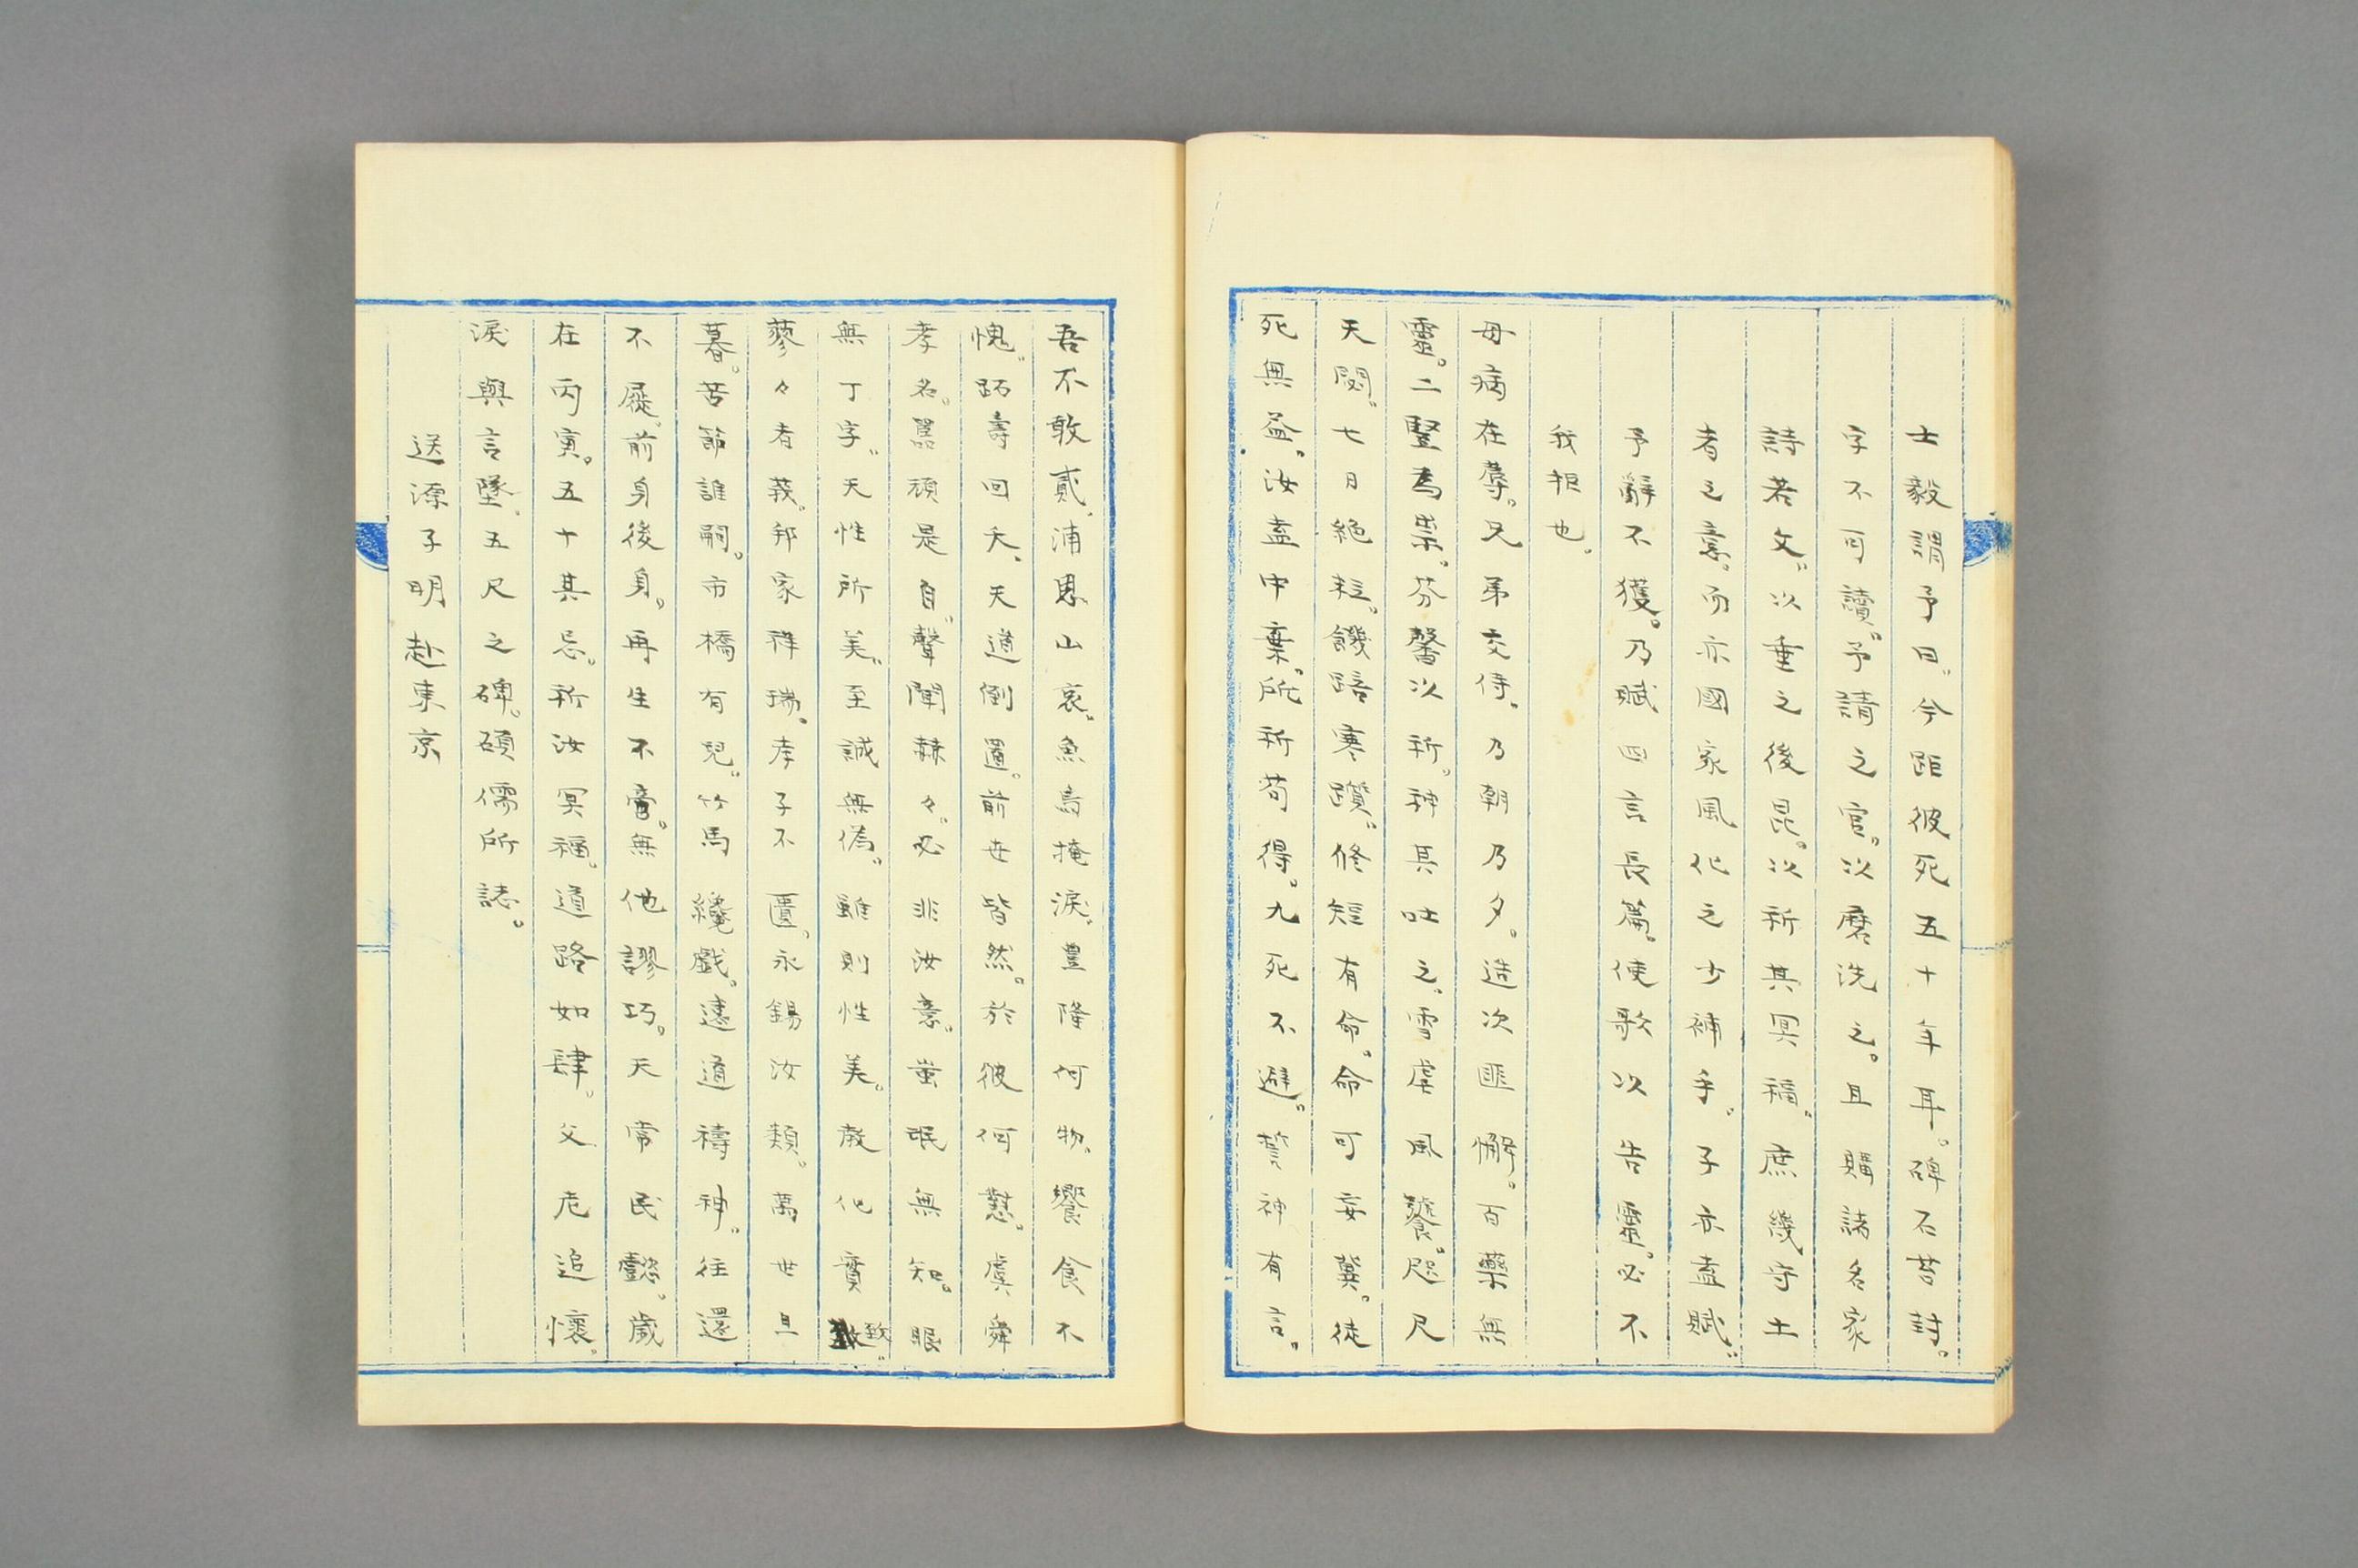 士毅謂予曰。今距彼死五十年耳。碑石苔封。
字不可讀。予請之官。以磨洗之。且購諸名家
詩若文。以垂之後昆。以祈其冥福。庶幾守土
者之意。而亦國家風化之少補乎。子亦盍賦。
予辭不獲。乃賦四言長篇。使歌以告靈。必不
我拒也。
母病在蓐。兄弟交侍。乃朝乃夕。造次匪懈。百藥無
靈。二豎爲祟。芬馨以祈。神其吐之。雪虐風饕。咫尺
天閟。七日絶粒。饑踣寒躓。修短有命。命可妄冀。徒
死無益。汝盍中棄。所祈苟得。九死不避。誓神有言。
吾不敢貳。浦思山哀。魚鳥掩淚。豊隆何物。饗食不
愧。跖壽回夭、天道倒置。前世皆然。於彼何懟。虞舜
孝名。嚚頑是自。聲聞赫々。必非汝意。蚩氓無知。眼
無丁字。天性所美。至誠無偽。雖則性美。教化實致。
蓼々者莪。邦家祥瑞。孝子不匱。永錫汝類。萬世旦
暮。苦節誰嗣。市橋有兒。竹馬纔戲。遶道禱神。往還
不屣。前身後身。再生不啻。無他謬巧。天常民懿。歲
在丙寅。五十其忌。祈汝冥福。道路如肆。父老追懷。
淚與言墜。五尺之碑。碩儒所誌。
送源子明赴東京